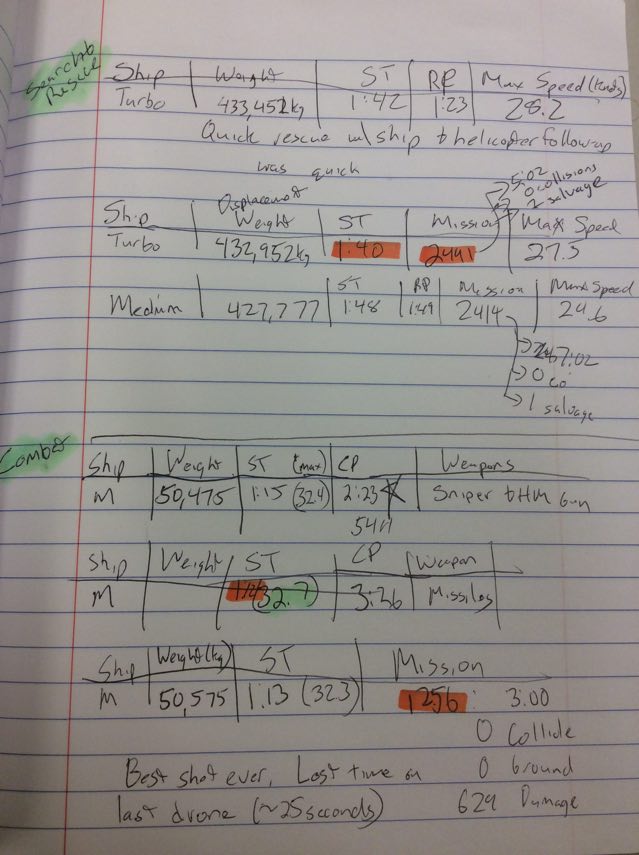 Search &
Rescue
Ship Weight ST RR Max Speed (knots)
Turbo 433,452kg 1:42 1:23 28.2
Quick rescue w/ ship & helicopter follow-up
was quick
5:02
0 collisions
2 salvage
Ship Displacement Weight ST Mission Max Speed
Turbo 432,952kg 1:40 2441 27.3
ST RR Mission Max Speed
Medium 427,777 1:48 1:49 2414 24.6
7:02
0 co
1 salvage
Combat
Ship Weight ST (max) CP Weapons
M 50,475 1:15 (32.4) 2:23 Sniper & HM Gun
Ship Weight ST CP Weapon
M (32.7) 3:36 Missiles
Ship Weight (kg) ST Mission
M 50,575 1:13 (32.3) 1256 : 3:00
0 Collide
Best shot ever, Lost time on 0 Ground
last drone (~25 seconds) 629 Damage